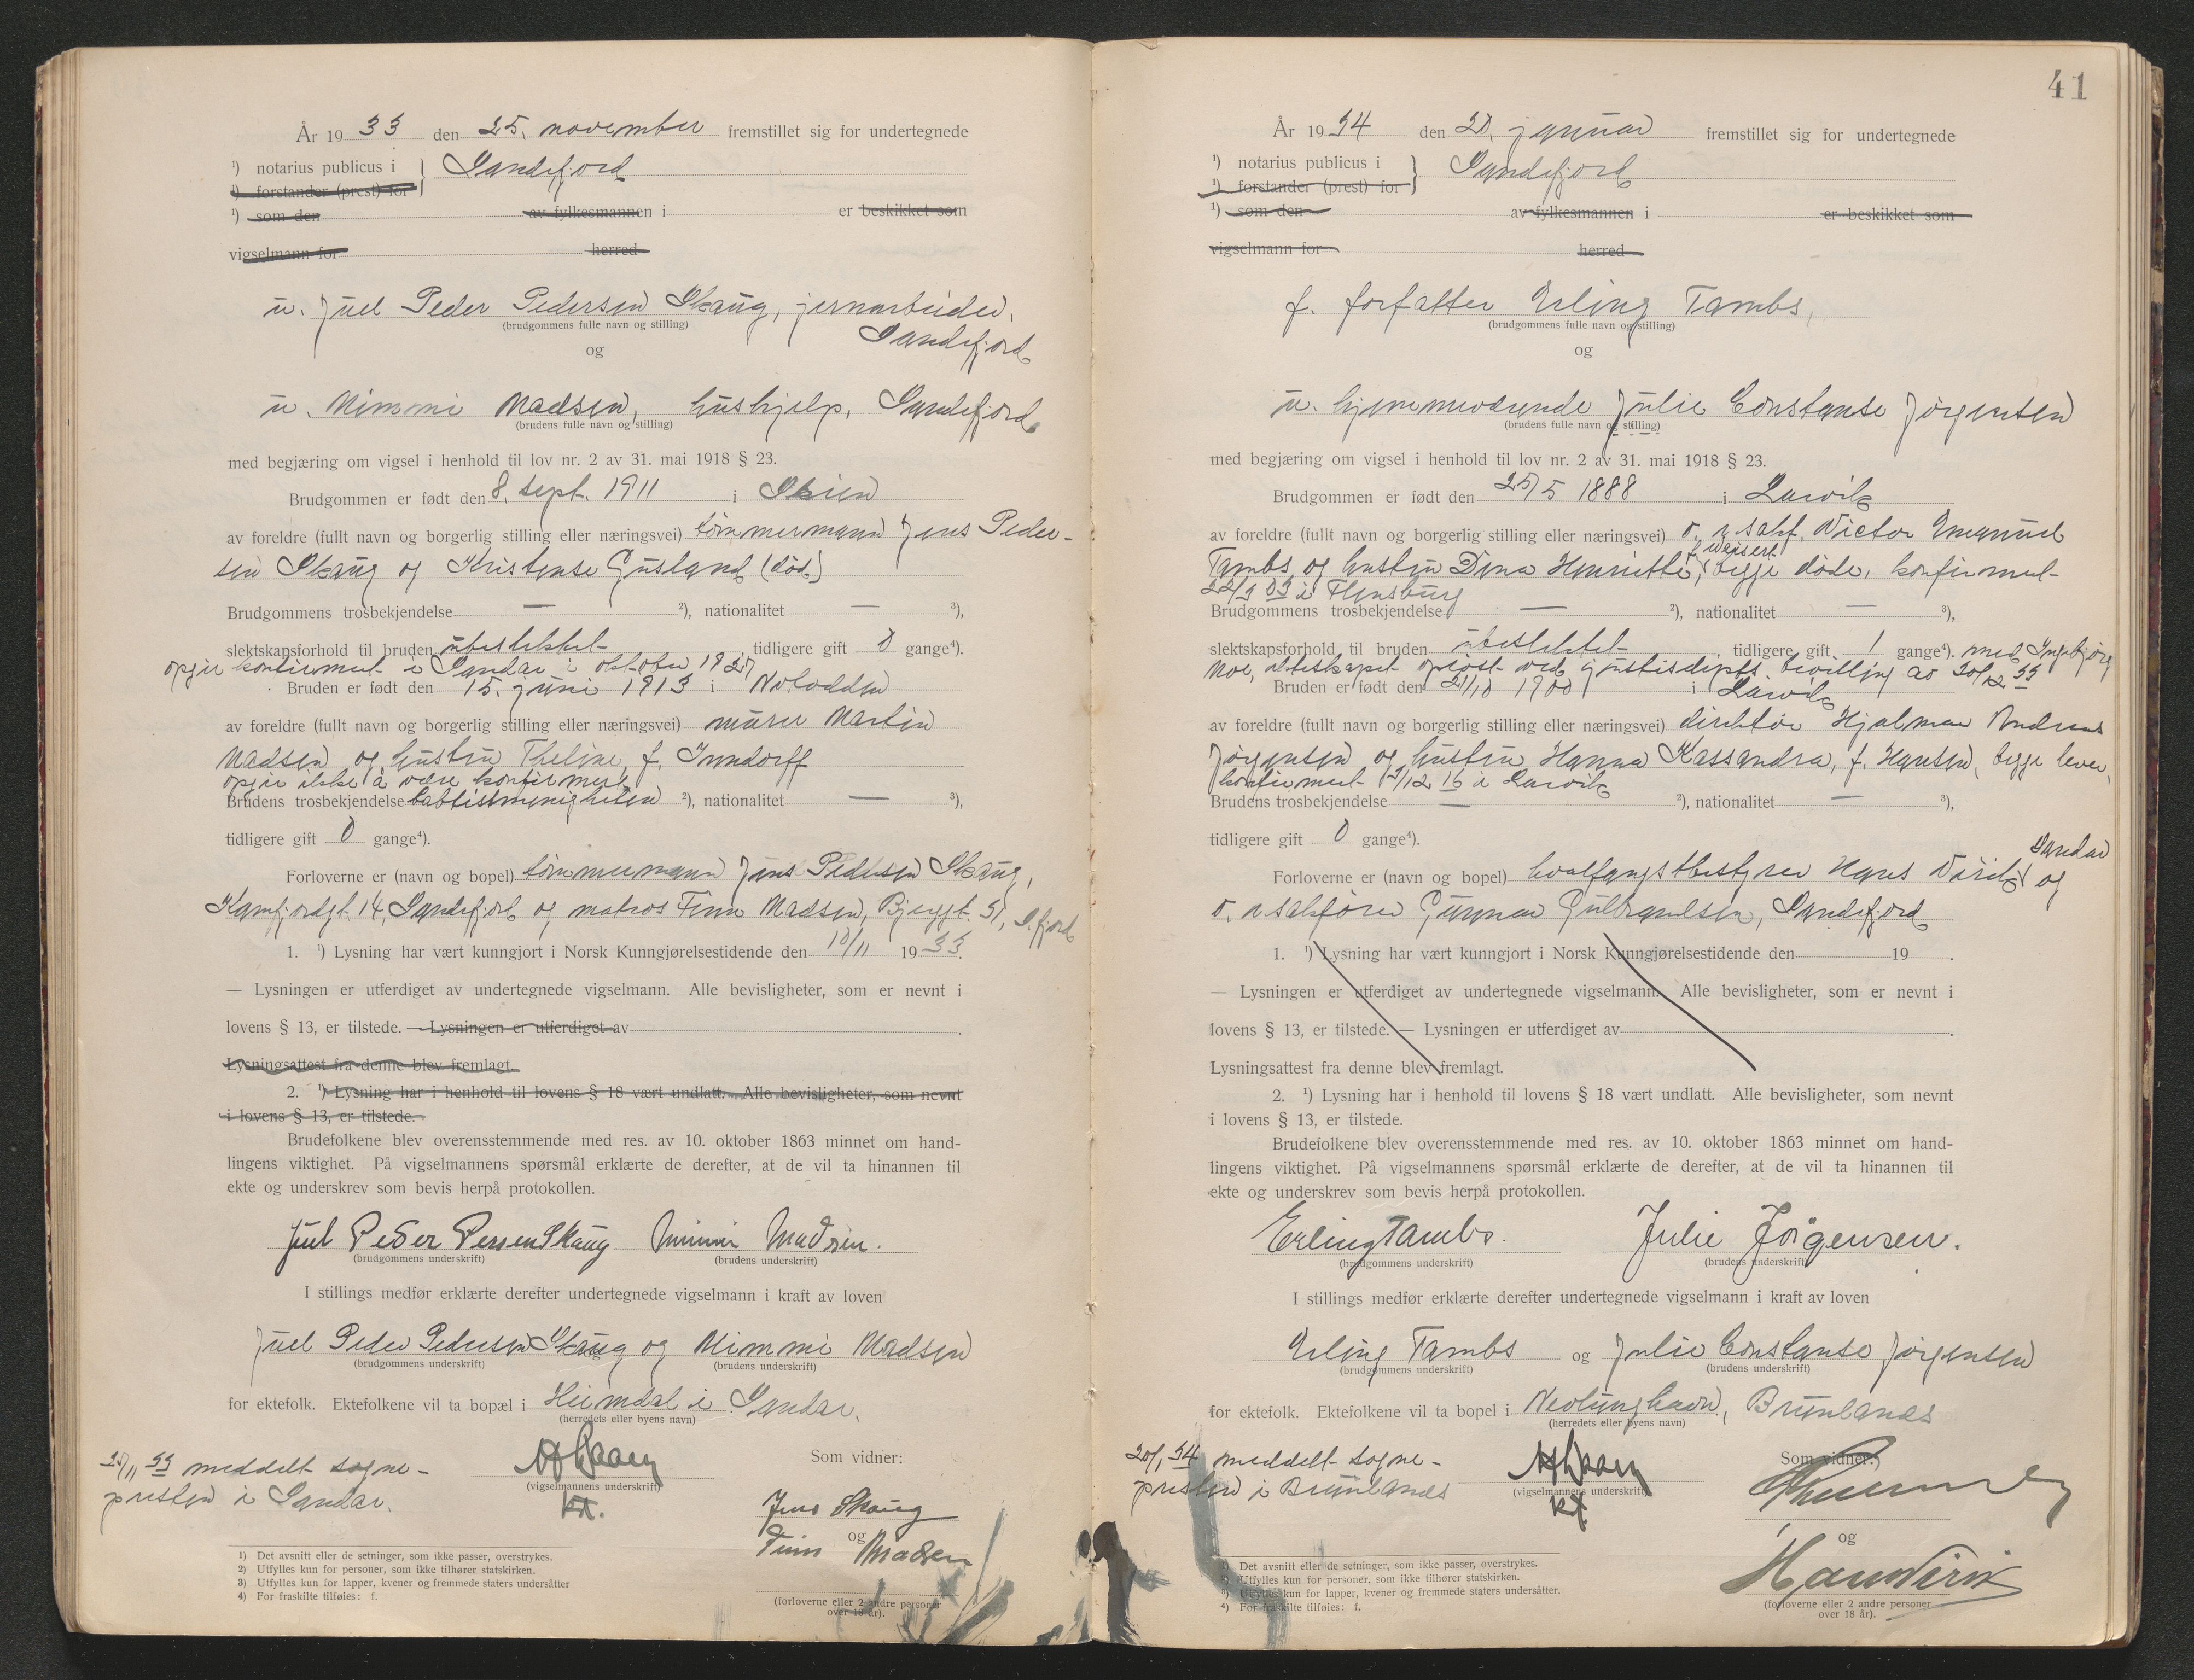 År 1933 den 25. november fremstillet sig for undertegnede
¹) notarius publicus i } Sandefjord
¹) forstander (prest) for
¹) som den av fylkesmannen i er beskikket som
vigselmann for herred
u. Juel Peder Pedersen Skaug, jernarbeider,
(brudgommens fulle navn og stilling)
Sandefjord
og
u. Mimmi Madsen, hushjelp, Sandefjord
(brudens fulle navn og stilling)
med begjæring om vigsel i henhold til lov nr. 2 av 31. mai 1918 § 23.
Brudgommen er født den 8. sept. 1911 i Skien
av foreldre (fullt navn og borgerlig stilling eller næringsvei) tømmermann Jens Peder-
sen Skaug og Kristense Gusland (død)
Brudgommens trosbekjendelse — ²), nationalitet — ³),
slektskapsforhold til bruden ubeslektet tidligere gift 0 gange⁴).
opgir konfirmert i Sandar i oktober 1927
Bruden er født den 15. juni 1913 i Notodden
av foreldre (fullt navn og borgerlig stilling eller næringsvei) murer Martin
Madsen og hustru Theline, f.
opgir ikke å være konfirmert
Brudens trosbekjendelse babtistmenigheten ²), nationalitet — ³),
tidligere gift 0 gange⁴).
Forloverne er (navn og bopel) tømmermann Jens Pedersen Skaug,
Kamfjordgt. 14, Sandefjord og matros Finn Madsen, Bjerggt. 51, S.fjord
1. ¹) Lysning har vært kunngjort i Norsk Kunngjørelsestidende den 10/11 1933.
— Lysningen er utferdiget av undertegnede vigselmann. Alle bevisligheter, som er nevnt i
lovens § 13, er tilstede. — Lysningen er utferdiget av .
Lysningsattest fra denne blev fremlagt.
2. ¹) Lysning har i henhold til lovens § 18 vært undlatt. Alle bevisligheter, som nevnt
i lovens § 13, er tilstede.
Brudefolkene blev overensstemmende med res. av 10. oktober 1863 minnet om hand-
lingens viktighet. På vigselmannens spørsmål erklærte de derefter, at de vil ta hinannen til
ekte og underskrev som bevis herpå protokollen.
Juel Peder Persen Skaug Mimmi Madsen.
(brudgommens underskrift) (brudens underskrift)
I stillings medfør erklærte derefter undertegnede vigselmann i kraft av loven
Juel Peder Pedersen Skaug og Mimmi Madsen
(brudgommens underskrift) (brudens underskrift)
for ektefolk. Ektefolkene vil ta bopæl i Heimdal i Sandar.
(herredets eller byens navn)
25/11 33 meddelt sogne-
presten i Sandar.
(vigselmannens underskrift)
kst.
Som vidner:
Jens Skaug
og
Finn Madsen
(forloverne eller 2 andre personer
over 18 år).
1) Det avsnitt eller de setninger, som ikke passer, overstrykes.
2) Utfylles kun for personer, som ikke tilhører statskirken.
3) Utfylles kun for lapper, kvener og fremmede staters undersåtter
4) For fraskilte tilføies: f.
41
År 1934 den 20. januar fremstillet sig for undertegnede
¹) notarius publicus i } Sandefjord
¹) forstander (prest) for
¹) som den av fylkesmannen i er beskikket som
vigselmann for herred
f. forfatter Erling Tambs,
(brudgommens fulle navn og stilling)
og
u. hjemmeværende Julie Constanse Jørgensen
(brudens fulle navn og stilling)
med begjæring om vigsel i henhold til lov nr. 2 av 31. mai 1918 § 23.
Brudgommen er født den 25/5 1888 i Larvik
av foreldre (fullt navn og borgerlig stilling eller næringsvei) o.r.sakf. Victor Emanuel
Tambs og hustru Dina Henriette, f. begge døde, konfirmert
22/3 03 i Flensburg
Brudgommens trosbekjendelse — ²), nationalitet — ³),
slektskapsforhold til bruden ubeslektet tidligere gift 1 gange⁴). med Ingebjørg
Moe, ekteskapet opløst ved justisdepts bevilling av 30/12 33
Bruden er født den 21/10 1900 i Larvik
av foreldre (fullt navn og borgerlig stilling eller næringsvei) direktør Hjalmar Andreas
Jørgensen og hustru Hanna Kassandra, f. Hansen, begge lever,
konfirmert 12 16 i Larvik
Brudens trosbekjendelse — ²), nationalitet — ³),
tidligere gift 0 gange⁴).
Forloverne er (navn og bopel) hvalfangstbestyrer Hans Virik, Sandar og
o.r.sakfører Gunnar Gulbrandsen, Sandefjord
1. ¹) Lysning har vært kunngjort i Norsk Kunngjørelsestidende den 19 .
— Lysningen er utferdiget av undertegnede vigselmann. Alle bevisligheter, som er nevnt i
lovens § 13, er tilstede. — Lysningen er utferdiget av .
Lysningsattest fra denne blev fremlagt.
2. ¹) Lysning har i henhold til lovens § 18 vært undlatt. Alle bevisligheter, som nevnt
i lovens § 13, er tilstede.
Brudefolkene blev overensstemmende med res. av 10. oktober 1863 minnet om hand-
lingens viktighet. På vigselmannens spørsmål erklærte de derefter, at de vil ta hinannen til
ekte og underskrev som bevis herpå protokollen.
Erling Tambs. Julie Jørgensen.
(brudgommens underskrift) (brudens underskrift)
I stillings medfør erklærte derefter undertegnede vigselmann i kraft av loven
Erling Tambs og Julie Constanse Jørgensen
(brudgommens underskrift) (brudens underskrift)
for ektefolk. Ektefolkene vil ta bopel i Nevlunghavn, Brunlanes
(herredets eller byens navn)
20/1 34 meddelt sogne-
presten i Brunlanes
(vigselmannens underskrift)
kst.
Som vidner:
og
Hans Virik
(forloverne eller 2 andre personer
over 18 år).
1) Det avsnitt eller de setninger, som ikke passer, overstrykes.
2) Utfylles kun for personer, som ikke tilhører statskirken.
3) Utfylles kun for lapper, kvener og fremmede staters undersåtter.
4) For fraskilte tilføies: f.